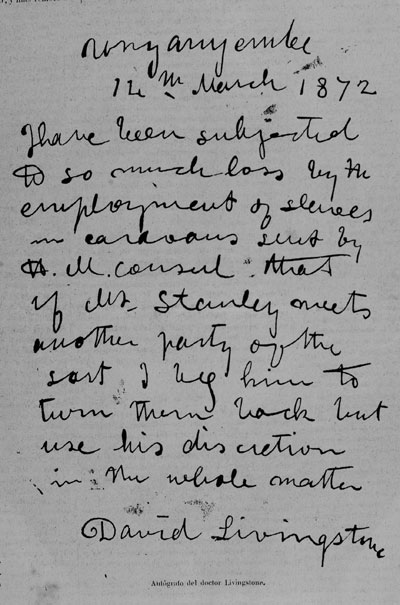 Unyanyembe
14th March 1872
I have been subjected
to so much loss by the
employment of slaves
in caravans sent by
H. M. Consul that
if Mr. Stanley meets
another party of the
sort I beg him to
turn them back but
use his discretion
in the whole matter
David Livingstone
Autógrafo del doctor Livingstone.